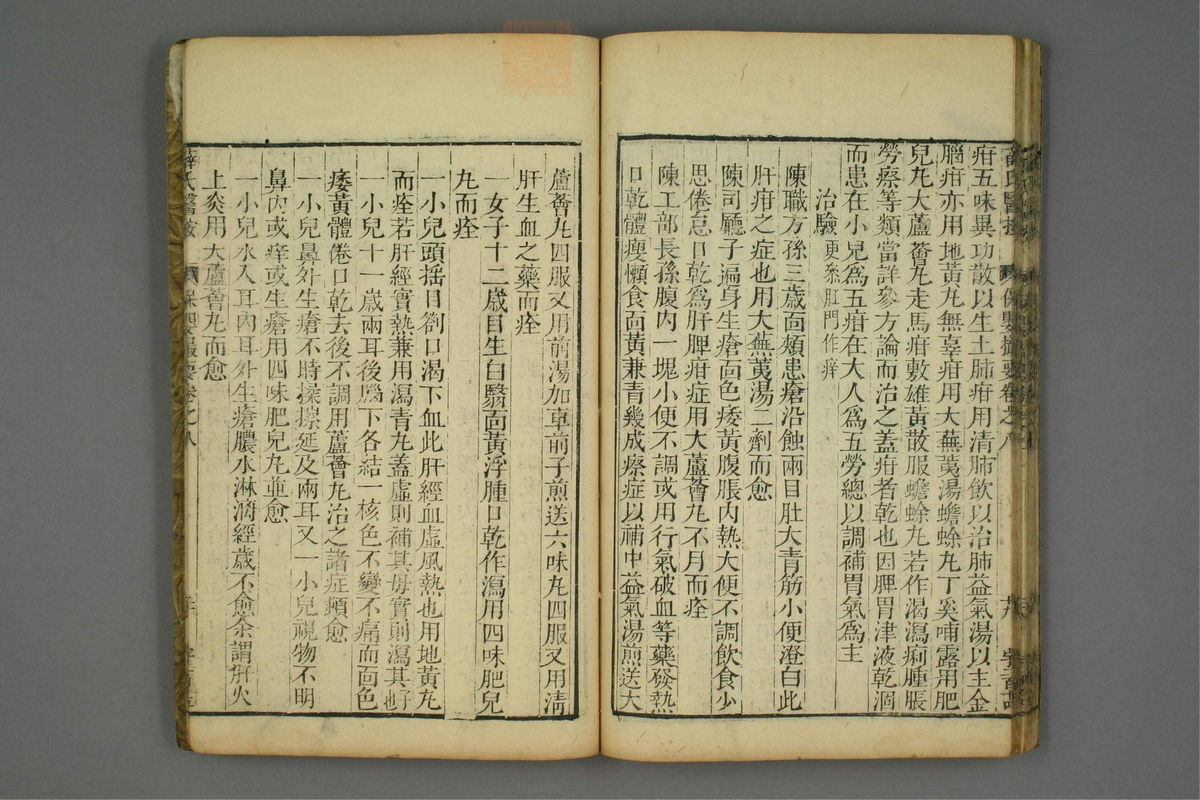 疳五味異功散以生土肺疳用清肺飲以治肺益氣湯以主金
腦疳亦用地黃丸無辜疳用大蕪荑湯蟾蜍丸丁奚哺露用肥
兒丸大蘆薈丸走馬疳敷雄黃散服蟾蜍丸若作渴瀉痢腫脹
勞瘵等類當詳參方論而治之蓋疳者乾也因脾胃津液乾涸
而患在小兒為五疳在大人為五勞總以調補胃氣為主
治驗更叅肛門作痒
陳職方孫三歲面頰患瘡沿蝕兩目肚大青筋小便澄白此
肝疳之症也用大蕪荑湯二劑而愈
陳司廳子遍身生瘡面色痿黃腹脹內熱大便不調飲食少
思倦怠口乾為肝脾疳症用大蘆薈丸不月而痊
陳工部長孫腹內一塊小便不調或用行氣破血等藥發熱
口乾體瘦懶食面黃兼青幾成瘵症以補中益氣湯煎送大
蘆薈丸四服又用前湯加車前子煎送六味丸四服又用清
肝生血之藥而痊
一女子十二歲目生白翳面黃浮腫口乾作瀉用四味肥兒
丸而痊
一小兒頭搖目劄口渴下血此肝經血虛風熱也用地黃丸
而痊若肝經實熱兼用瀉青丸蓋虛則補其母實則瀉其子也
一小兒十一歲兩耳後腦下各結一核色不變不痛而面色
痿黃體倦口乾去後不調用蘆薈丸治之諸症頓愈
一小兒鼻外生瘡不時揉擦延及兩耳又一小兒視物不明
鼻內或痒或生瘡用四味肥兒丸並愈
一小兒水入耳內耳外生瘡膿水淋漓經歲不愈余謂肝火
上炎用大蘆薈丸而愈
薛氏醫按 保嬰撮要卷之八